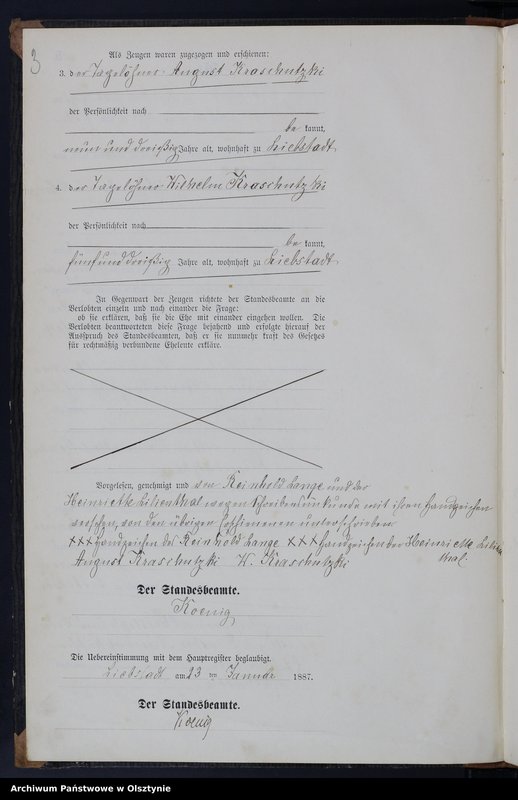 3
Als Zeugen waren zugezogen und erschienen:
3. der Tagelöhner August Kraschutzki
der Persönlichkeit nach
be kannt,
neun und dreißig Jahre alt, wohnhaft zu Liebstadt
4. der Tagelöhner Wilhelm Kraschutzki
der Persönlichkeit nach
be kannt,
fünfunddreißig Jahre alt, wohnhaft zu Liebstadt
In Gegenwart der Zeugen richtete der Standesbeamte an die
Verlobten einzeln und nach einander die Frage:
ob sie erklären, daß sie die Ehe mit einander eingehen wollen. Die
Verlobten beantworteten diese Frage bejahend und erfolgte hierauf der
Ausspruch des Standesbeamten, daß er sie nunmehr kraft des Gesetzes
für rechtmäßig verbundene Eheleute erkläre.
Vorgelesen, genehmigt und von Reinhold Lange und der
Heinriette Lilienthal wegen Schreibensunkunde mit ihren Handzeichen
versehen, von den übrigen Erschienenen unterschrieben
XXX Handzeichen des Reinhold Lange XXX Handzeichen der Heinriette Lilien
thal
August Kraschutzki W. Kraschutzki
Der Standesbeamte.
Koenig
Die Uebereinstimmung mit dem Hauptregister beglaubigt.
Liebstadt am 23 ten Januar 1887.
Der Standesbeamte.
Koenig
Archiwum Państwowe w Olsztynie